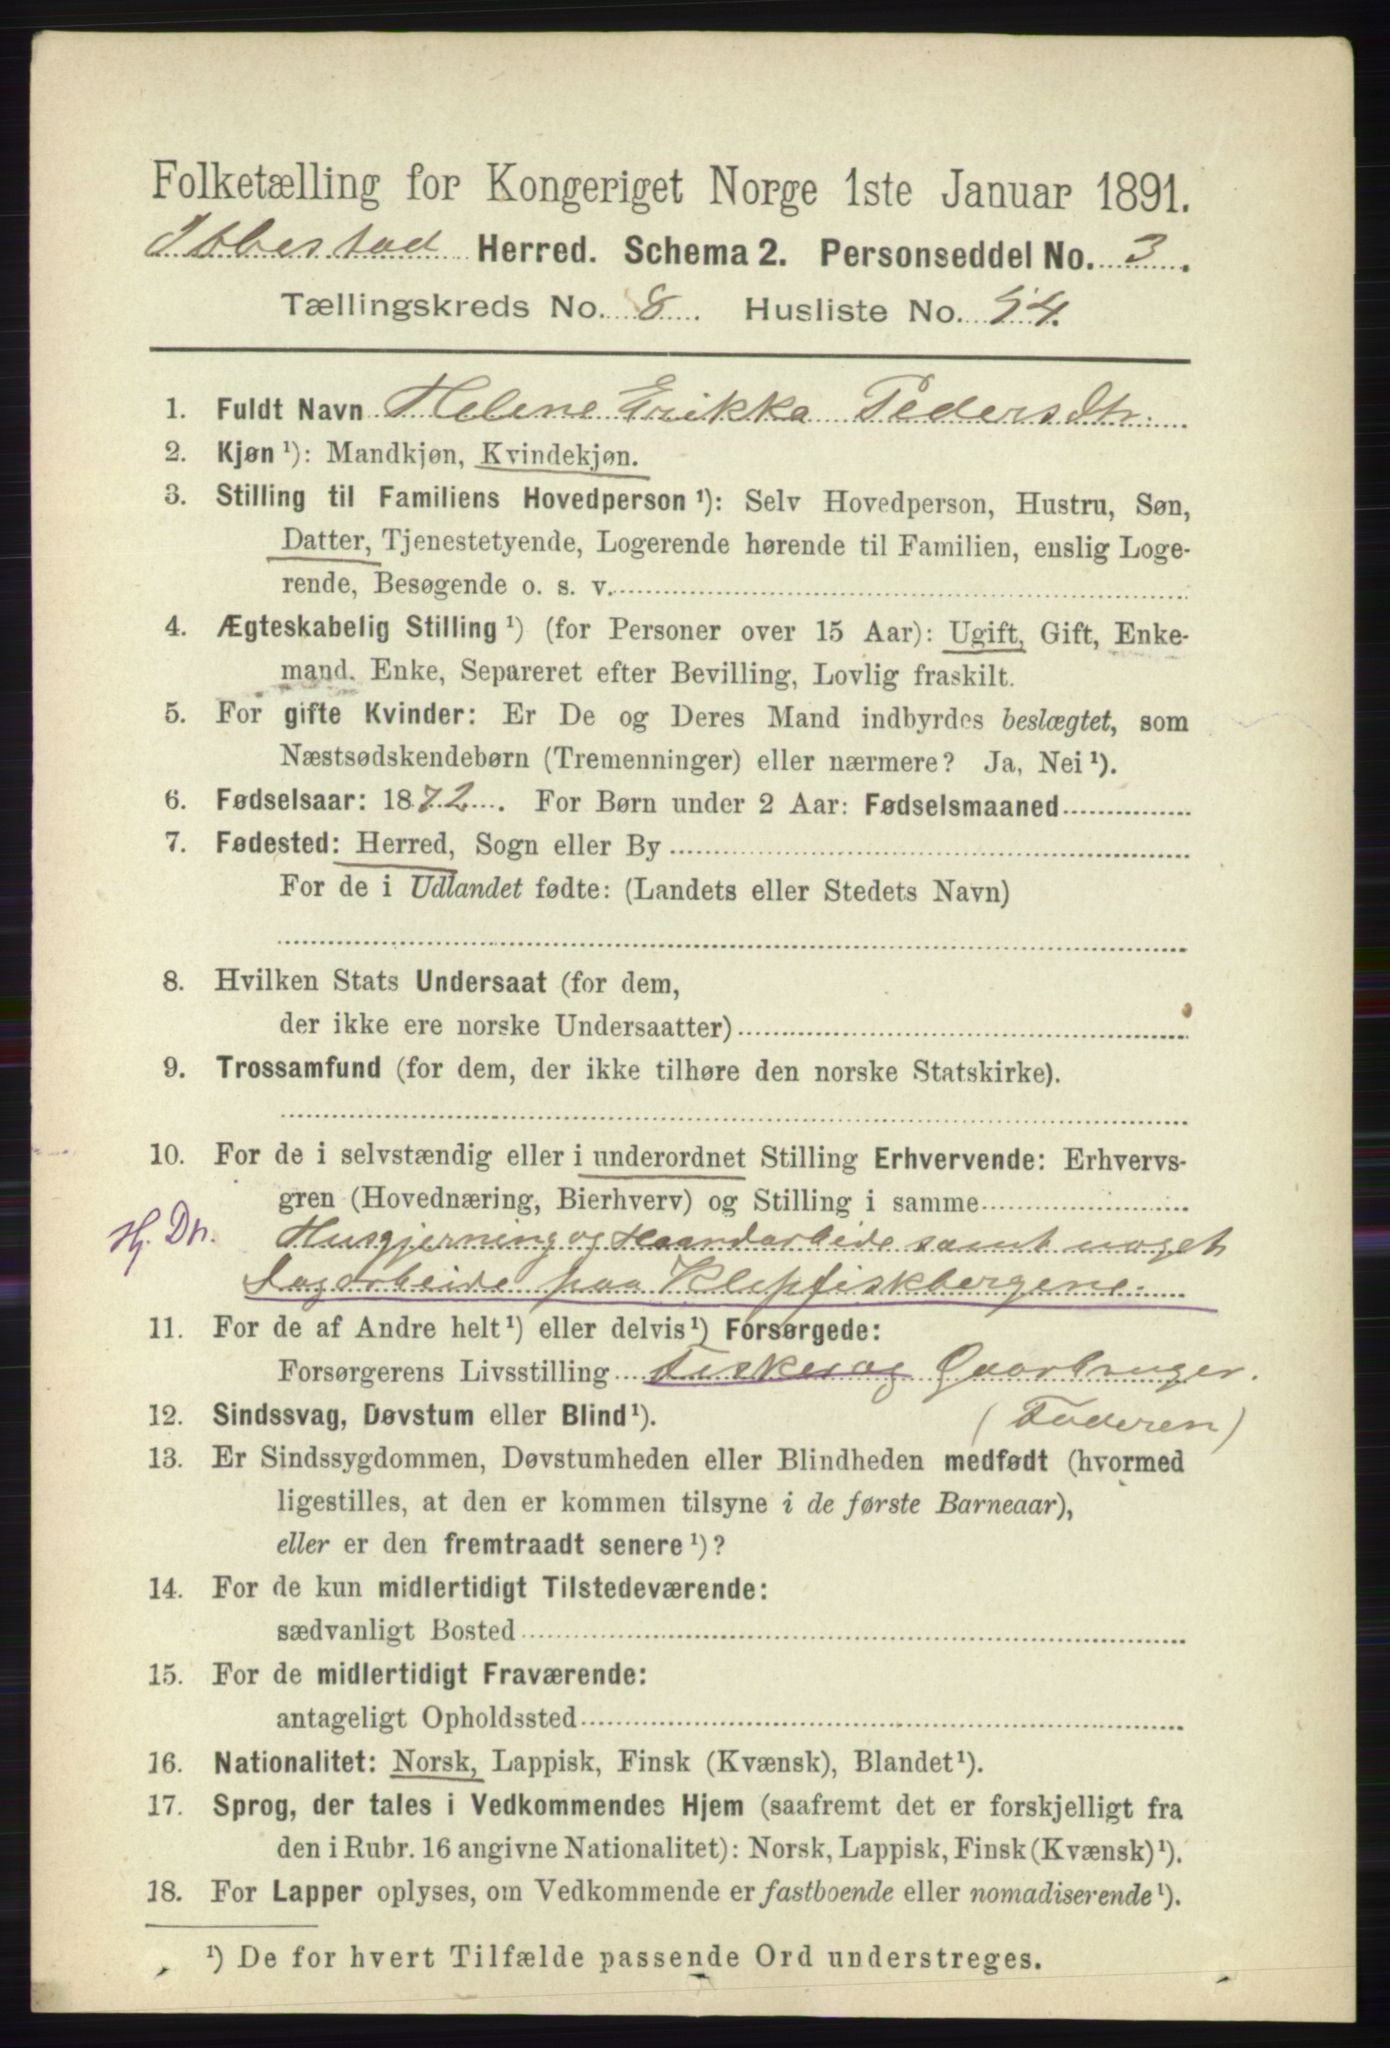 Folketælling for Kongeriget Norge 1ste Januar 1891.
Ibbestad Herred. Schema 2. Personseddel No. 3.
Tællingskreds No. 8. Husliste No. 54.
1. Fuldt Navn Helene Erikka Pedersdtr.
2. Kjøn ¹): Mandkjøn, Kvindekjøn.
3. Stilling til Familiens Hovedperson ¹): Selv Hovedperson, Hustru, Søn,
Datter, Tjenestetyende, Logerende hørende til Familien, enslig Loge-
rende, Besøgende o. s. v.
4. Ægteskabelig Stilling ¹) (for Personer over 15 Aar): Ugift, Gift, Enke-
mand. Enke, Separeret efter Bevilling, Lovlig fraskilt.
5. For gifte Kvinder: Er De og Deres Mand indbyrdes beslægtet, som
Næstsødskendebørn (Tremenninger) eller nærmere? Ja, Nei ¹).
6. Fødselsaar: 1872. For Børn under 2 Aar: Fødselsmaaned
7. Fødested: Herred, Sogn eller By
For de i Udlandet fødte: (Landets eller Stedets Navn)
8. Hvilken Stats Undersaat (for dem,
der ikke ere norske Undersaatter)
9. Trossamfund (for dem, der ikke tilhøre den norske Statskirke).
10. For de i selvstændig eller i underordnet Stilling Erhvervende: Erhvervs-
gren (Hovednæring, Bierhverv) og Stilling i samme
Hj. Dtr. Husgjerning og Haandarbeide samt noget
Dagarbeide paa Klepfiskbergene.
11. For de af Andre helt ¹) eller delvis ¹) Forsørgede:
Forsørgerens Livsstilling Fisker og Gaarbruger.
12. Sindssvag, Døvstum eller Blind ¹). (Faderen)
13. Er Sindssygdommen, Døvstumheden eller Blindheden medfødt (hvormed
ligestilles, at den er kommen tilsyne i de første Barneaar),
eller er den fremtraadt senere ¹)?
14. For de kun midlertidigt Tilstedeværende:
sædvanligt Bosted
15. For de midlertidigt Fraværende:
antageligt Opholdssted
16. Nationalitet: Norsk, Lappisk, Finsk (Kvænsk), Blandet ¹).
17. Sprog, der tales i Vedkommendes Hjem (saafremt det er forskjelligt fra
den i Rubr. 16 angivne Nationalitet): Norsk, Lappisk, Finsk (Kvænsk) ¹).
18. For Lapper oplyses, om Vedkommende er fastboende eller nomadiserende ¹).
¹) De for hvert Tilfælde passende Ord understreges.